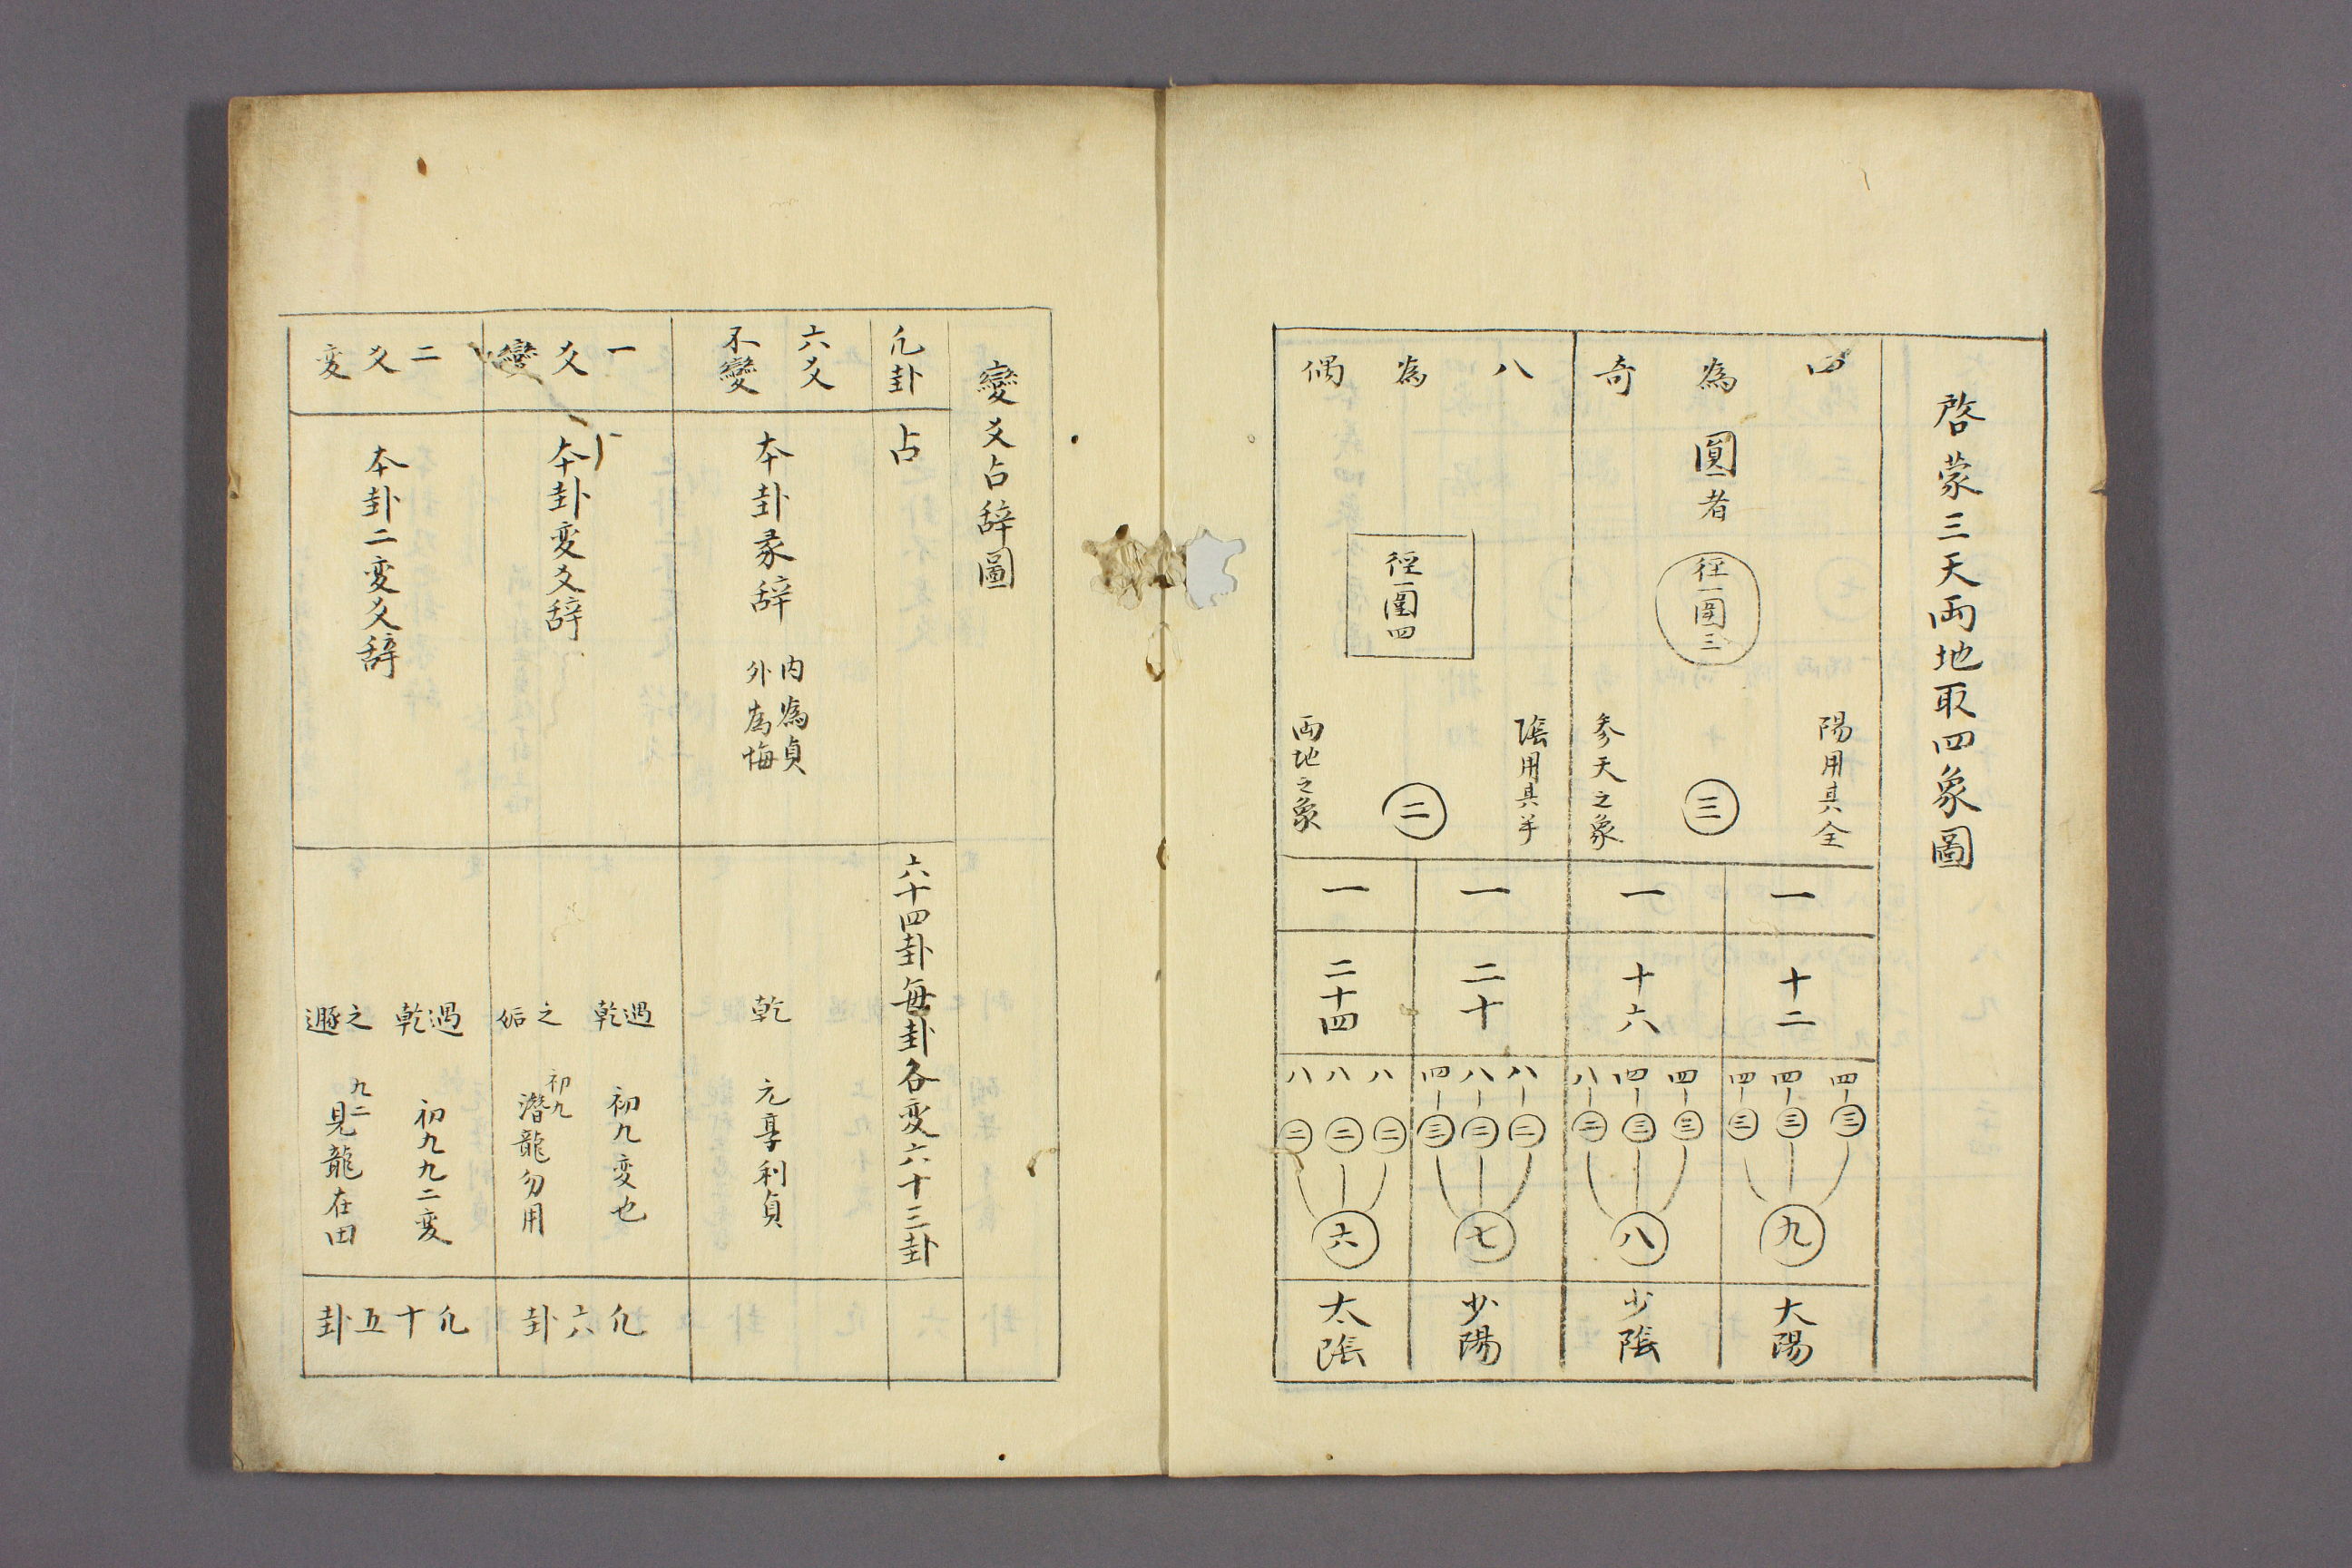 啓蒙三天両地取四象圖
四為奇
圓者
徑一圍三
陽用其全
三
參天之象
八為偶
徑一圍四
陰用其半
二
両地之象
一
一
一
一
十二
十六
二十
二十四
四 四 四
三 三 三
九
四 四 八
三 三 二
八
八 八 四
二 二 三
七
八 八 八
二 二 二
六
太陽
少陰
少陽
太陰
變爻占辞圖
凢卦
占
六十四卦每卦各变六十三卦
六爻
不變
本卦彖辞
内為貞
外為悔
乾
元亨利貞
一爻變
本卦变爻辞
遇乾
之姤
初九变也
初九
潜龍勿用
凢六卦
二爻变
本卦二变爻辞
遇乾
之遯
初九九二变
九二
見龍在田
凢十五卦